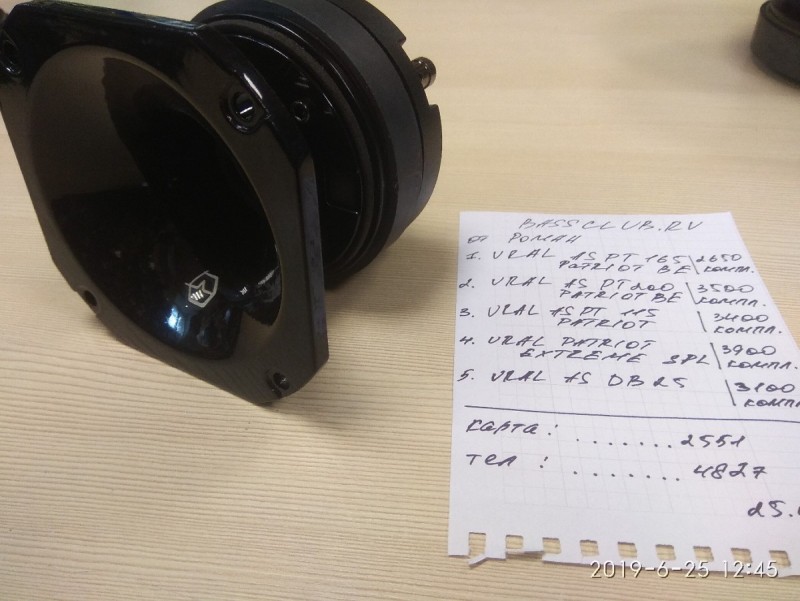 BASSCLUB.RU
от РОМАН
1. URAL AS PT 165 2650
PATRIOT BE КОМПЛ.
2. URAL AS PT 200 3500
PATRIOT BE КОМПЛ.
3. URAL AS PT 115 3400
PATRIOT КОМПЛ.
4. URAL PATRIOT 3900
EXTREME SPL КОМПЛ.
5. URAL AS DB 25 3100
КОМПЛ
карта: .......2551
тел : .......4827
25.
2019-6-25 12:45